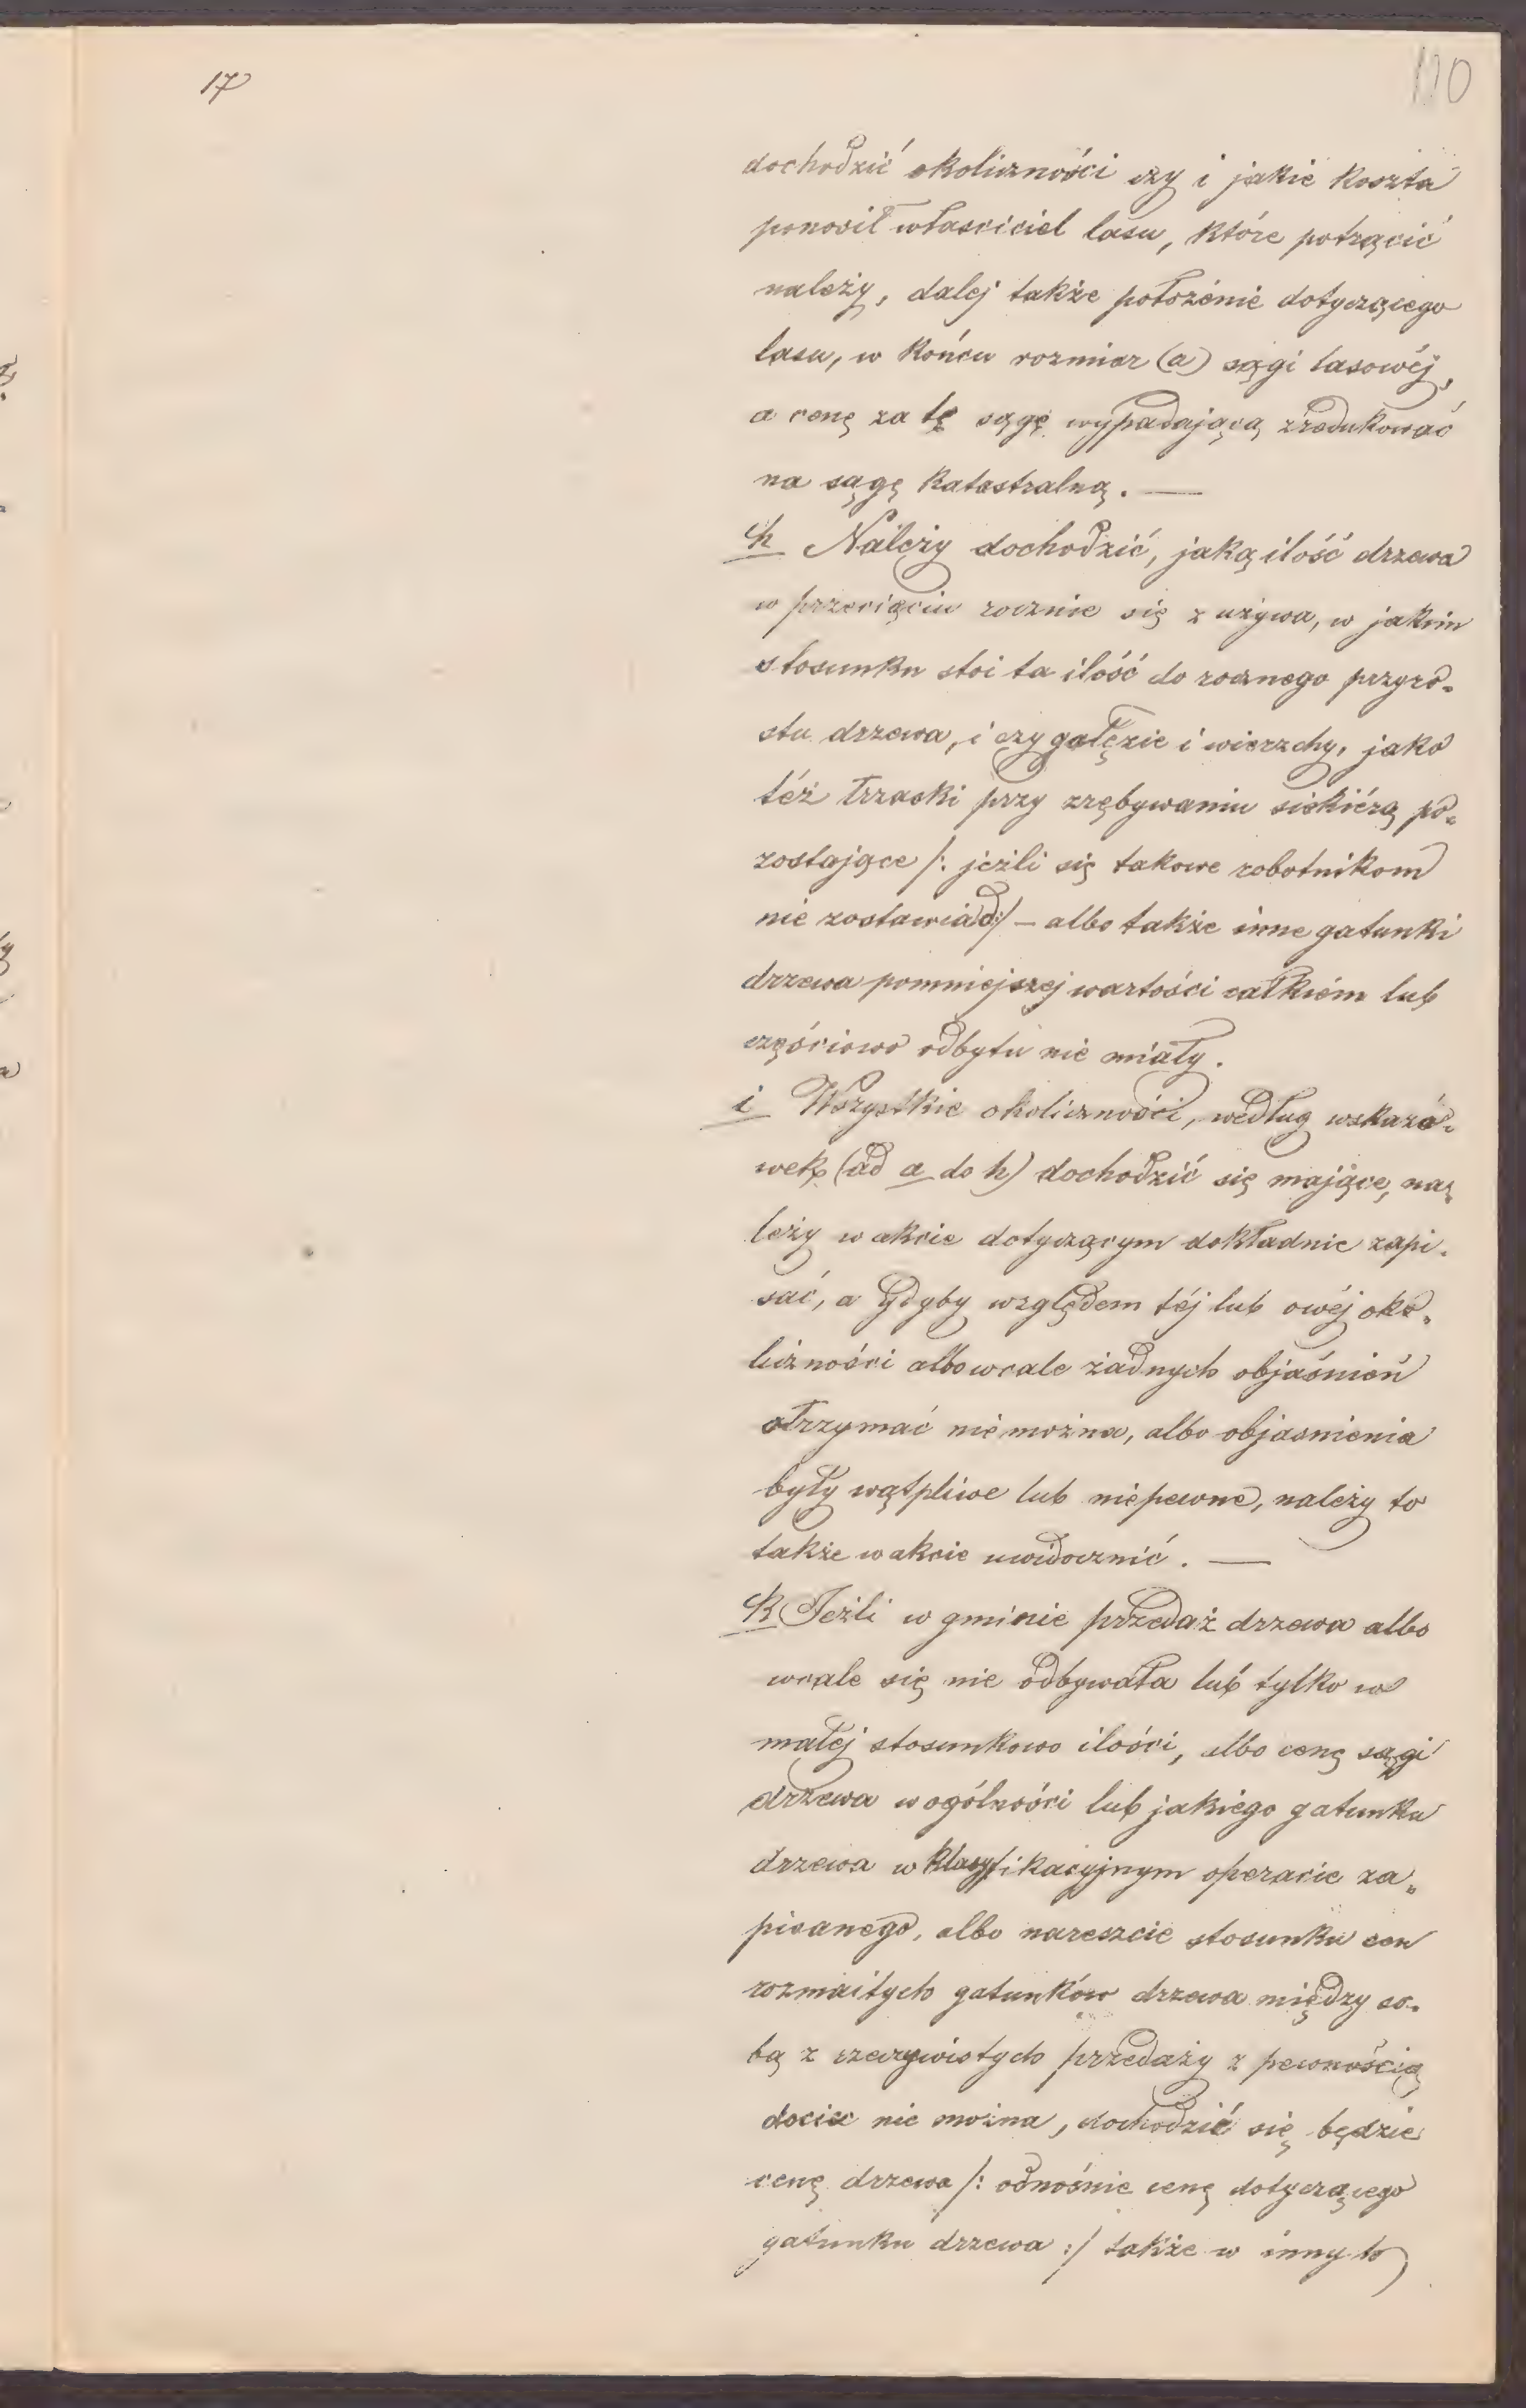 17
110
dochodzić okoliczności czy i jakie koszta
ponosił właściciel lasu, które potrącić
należy, dalej także położenie dotyczącego
lasu, w końcu rozmiar (a) sągi lasowéj,
a cenę za tę sągę wypadającą zredukować
na sągę katastralną. —
h Należy dochodzić, jaką ilość drzewa
w przecięciu rocznie się zużywa, w jakim
stosunku stoi ta ilość do rocznego przyro„
stu drzewa, i czy gałęzie i wierzchy, jako
téż trzaski przy zrębywaniu siekiérą po„
zostające /: jeżli się takowe robotnikom
nie zostawiało :/ – albo także inne gatunki
drzewa pomniejszej wartości całkiém lub
częściowo odbytu nie miały.
i Wszystkie okoliczności, według wskazó„
wek (ad a do h) dochodzić się mające, na„
leży w akcie dotyczącym dokładnie zapi„
sać, a gdyby względem téj lub owéj oko„
liczności albo wcale żadnych objaśnień
otrzymać nie można, albo objasnienia
były wątpliwe lub niepewne, należy to
także w akcie uwidocznić. —
k Jeżli w gminie przedaż drzewa albo
wcale się nie odbywała lub tylko w
małej stosunkowo ilości, albo cenę sągi
drzewa w ogólności lub jakiego gatunku
drzewa w klasyfikacyjnym operacie za„
pisanego, albo nareszcie stosunku cen
rozmaitych gatunków drzewa między so„
bą z rzeczywistych przedaży z pewnością
dociec nie można, dochodzić się będzie
cenę drzewa /: odnośnie cenę dotyczącego
gatunku drzewa :/ także w inny to